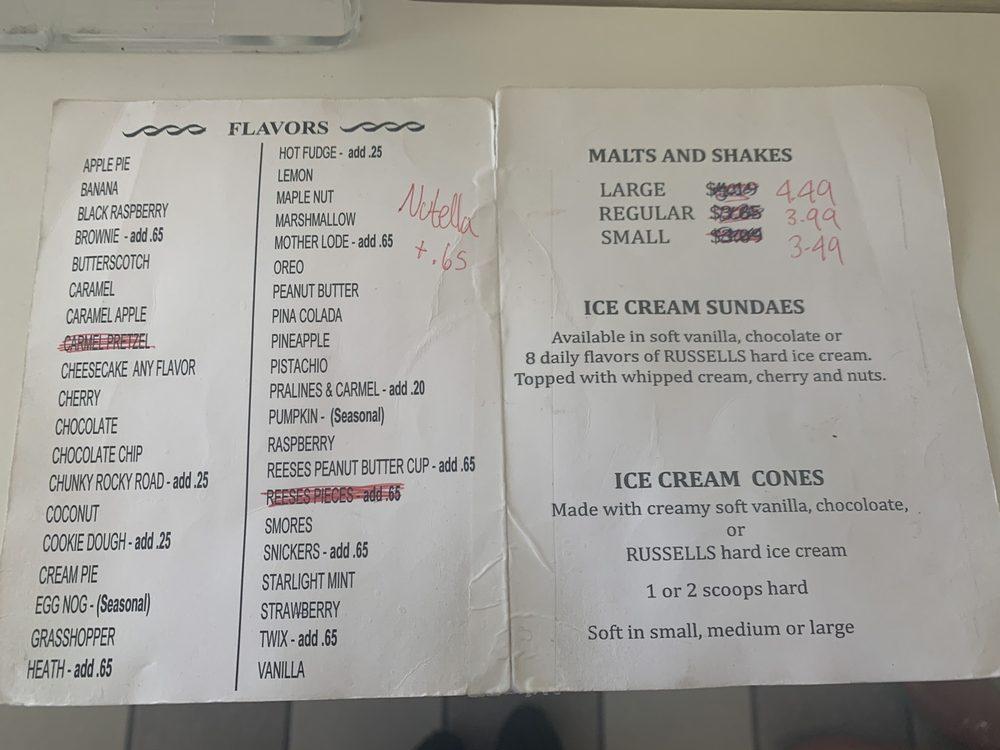 FLAVORS
APPLE PIE
BANANA
BLACK RASPBERRY
BROWNIE - add .65
BUTTERSCOTCH
CARAMEL
CARAMEL APPLE
CARMEL PRETZEL
CHEESECAKE ANY FLAVOR
CHERRY
CHOCOLATE
CHOCOLATE CHIP
CHUNKY ROCKY ROAD - add .25
COCONUT
COOKIE DOUGH - add .25
CREAM PIE
EGG NOG - (Seasonal)
GRASSHOPPER
HEATH - add .65
HOT FUDGE - add .25
LEMON
MAPLE NUT
MARSHMALLOW
MOTHER LODE - add .65
OREO
PEANUT BUTTER
PINA COLADA
PINEAPPLE
PISTACHIO
PRALINES & CARMEL - add .20
PUMPKIN - (Seasonal)
RASPBERRY
REESES PEANUT BUTTER CUP - add .65
REESES PIECES - add .65
SMORES
SNICKERS - add .65
STARLIGHT MINT
STRAWBERRY
TWIX - add .65
VANILLA
Nutella
+ .65
MALTS AND SHAKES
LARGE 4.49
REGULAR 3.99
SMALL 3.49
ICE CREAM SUNDAES
Available in soft vanilla, chocolate or
8 daily flavors of RUSSELLS hard ice cream.
Topped with whipped cream, cherry and nuts.
ICE CREAM CONES
Made with creamy soft vanilla, chocoloate,
or
RUSSELLS hard ice cream
1 or 2 scoops hard
Soft in small, medium or large